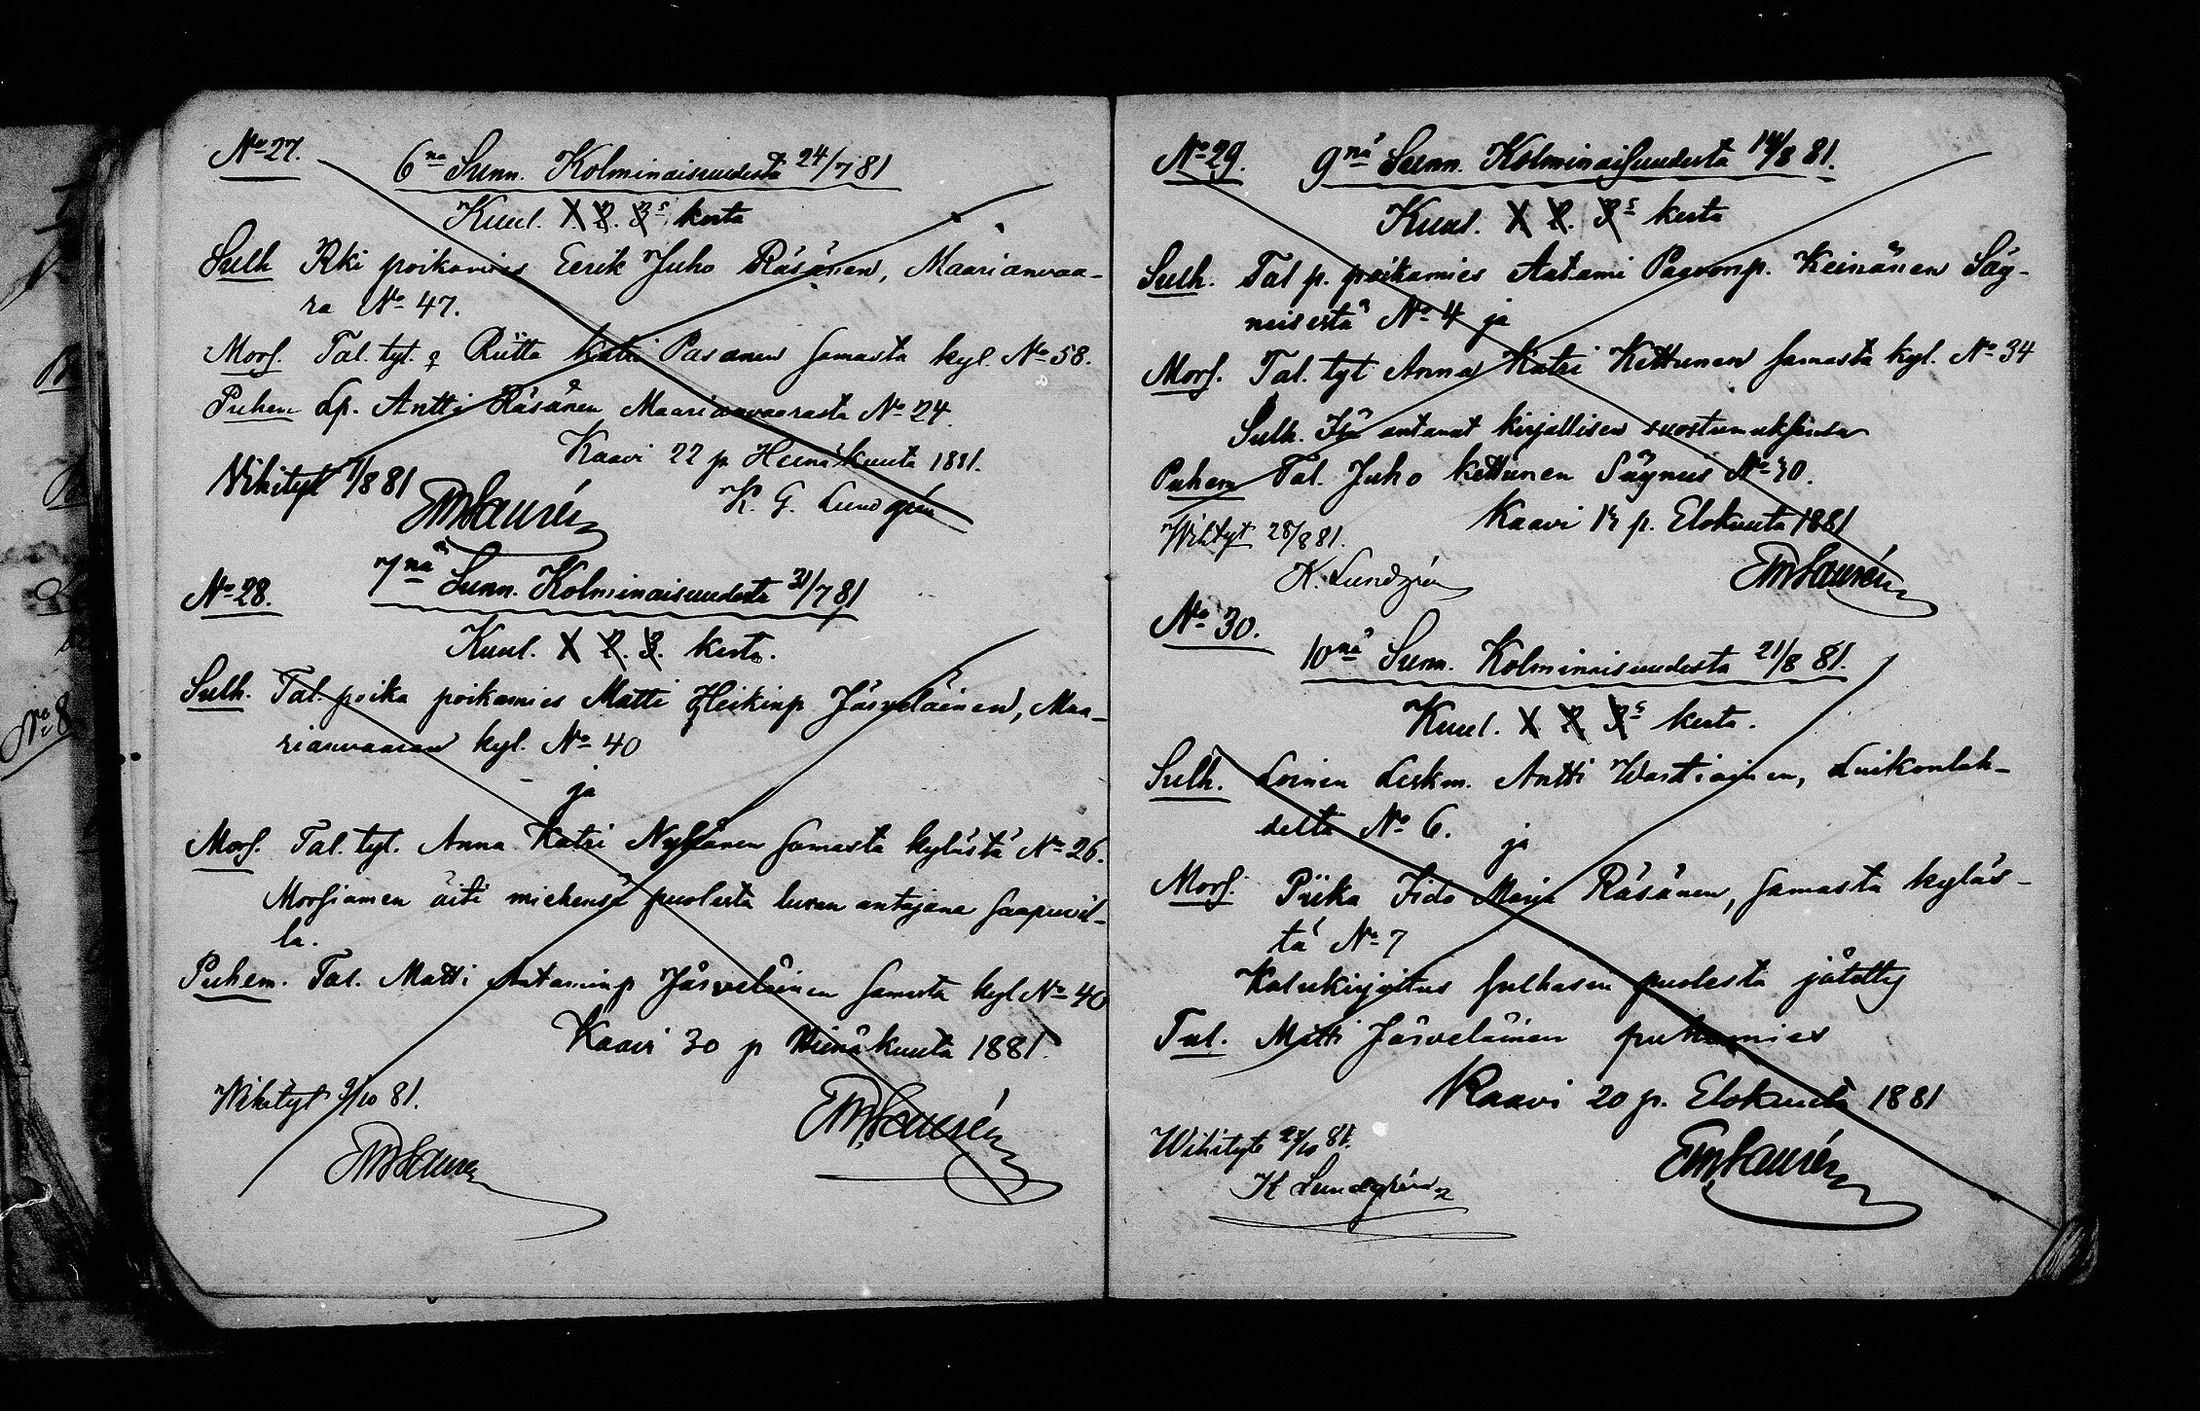 No 27.
6na Sunn. Kolminaisuudesta 24/7 81
Kuul. 1. 2. 3s kerta
Sulh Rki poikamies Eerik Juho Räsänen, Maarianvaa-
ra No 47.
Mors. Tal. tyt. Riitta Katri Pasanen samasta kyl. No 58.
Puhem Lp. Antti Räsänen Maarianvaarasta No 24.
Kaavi 22 p Heinäkuuta 1881.
Vihityt 81
K. G. Lundgrén
EmLaurén
No 28.
7nä Sunn. Kolminaisuudesta 31/7 81
Kuul. 1 2. 3. kerta.
Sulh. Tal. poika poikamies Matti Heikinp Järveläinen, Maa-
rianvaaran kyl. No 40
ja
Mors. Tal. tyt. Anna Katri samasta kylästä No 26.
Morsiamen äiti miehensä puolesta luvan antajana saapuvil-
la.
Puhem. Tal. Matti Aataminp Järveläinen samasta kyl No 40
Kaavi 30 p Heinäkuuta 1881.
Vihityt 9/10 81.
EmLaurén
EmLauren
No 29.
9nä Sunn. Kolminaisuudesta 14/8 81.
Kuul. 1 2. 3s kerta
Sulh. Tal p. poikamies Aatami Paavonp. Keinänen Säy-
neisestä No 4 ja
Mors. Tal. tyt Anna Katri Kettunen samasta kyl. No 34
Sulh. Isä antanut kirjallisen suostumuksensa
Puhem Tal. Juho Kettunen Säyneis
Kaavi p. Elokuuta 1881
Wihityt 28/8 81.
K. Lundgrén
EmLaurén
No 30.
10nä Sunn. Kolminaisuudesta 21/8 81.
Kuul. 1 2. 3s kerta.
Sulh. Loinen Leskm. Antti Wartiainen, Luikonlah-
delta No 6.
ja
Mors. Piika Iida Maija Räsänen, samasta kyläs-
tä No 7
Kalukirjoitus sulhasen puolesta jätetty
Tal. Matti Järveläinen puhemies
Kaavi 20 p. Elokuuta 1881
Wihityt 81.
K Lundgrén
EmLaurén
No 8